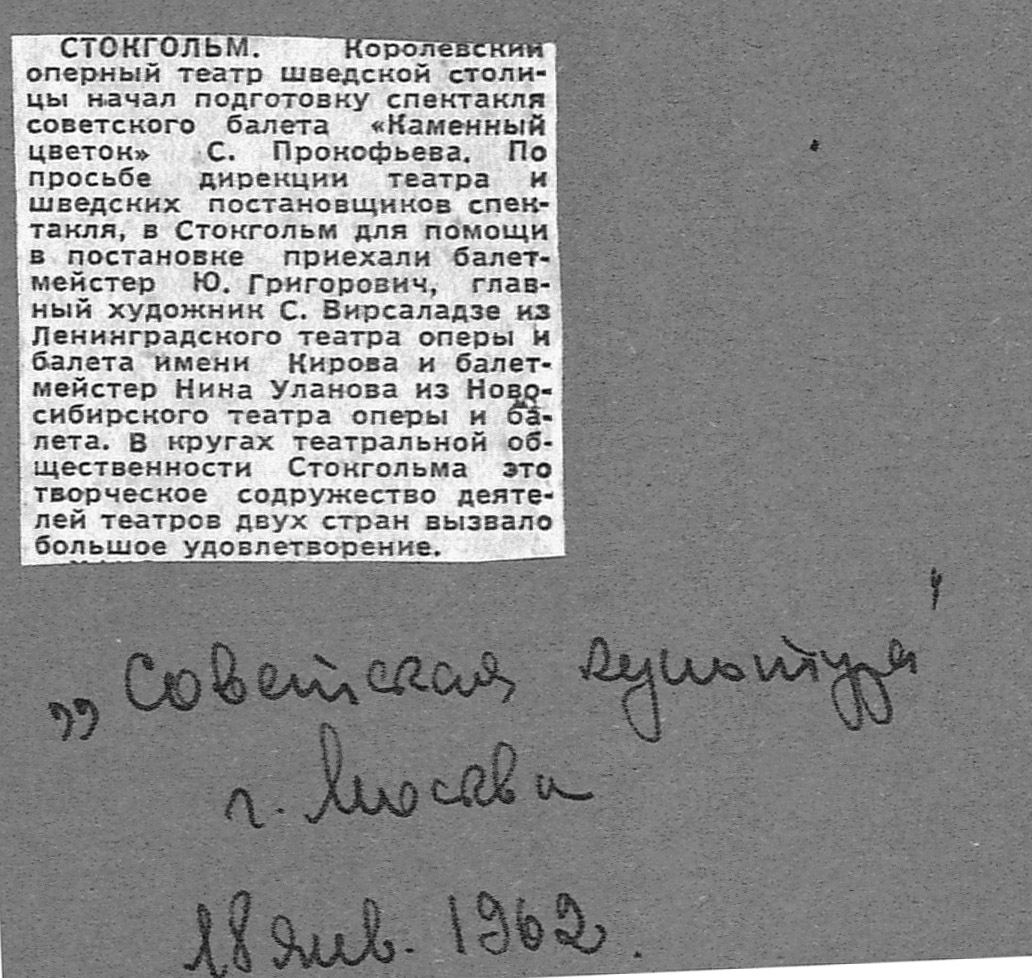 СТОКГОЛЬМ. Королевский
оперный театр шведской столи-
цы начал подготовку спектакля
советского балета «Каменный
цветок» С. Прокофьева. По
просьбе дирекции театра и
шведских постановщиков спек-
такля, в Стокгольм для помощи
в постановке приехали балет-
мейстер Ю. Григорович, глав-
ный художник С. Вирсаладзе из
Ленинградского театра оперы и
балета имени Кирова и балет-
мейстер Нина Уланова из Ново-
сибирского театра оперы и ба-
лета. В кругах театральной об-
щественности Стокгольма это
творческое содружество деяте-
лей театров двух стран вызвало
большое удовлетворение.
„Советская культура"
г. Москва
18 янв. 1962.